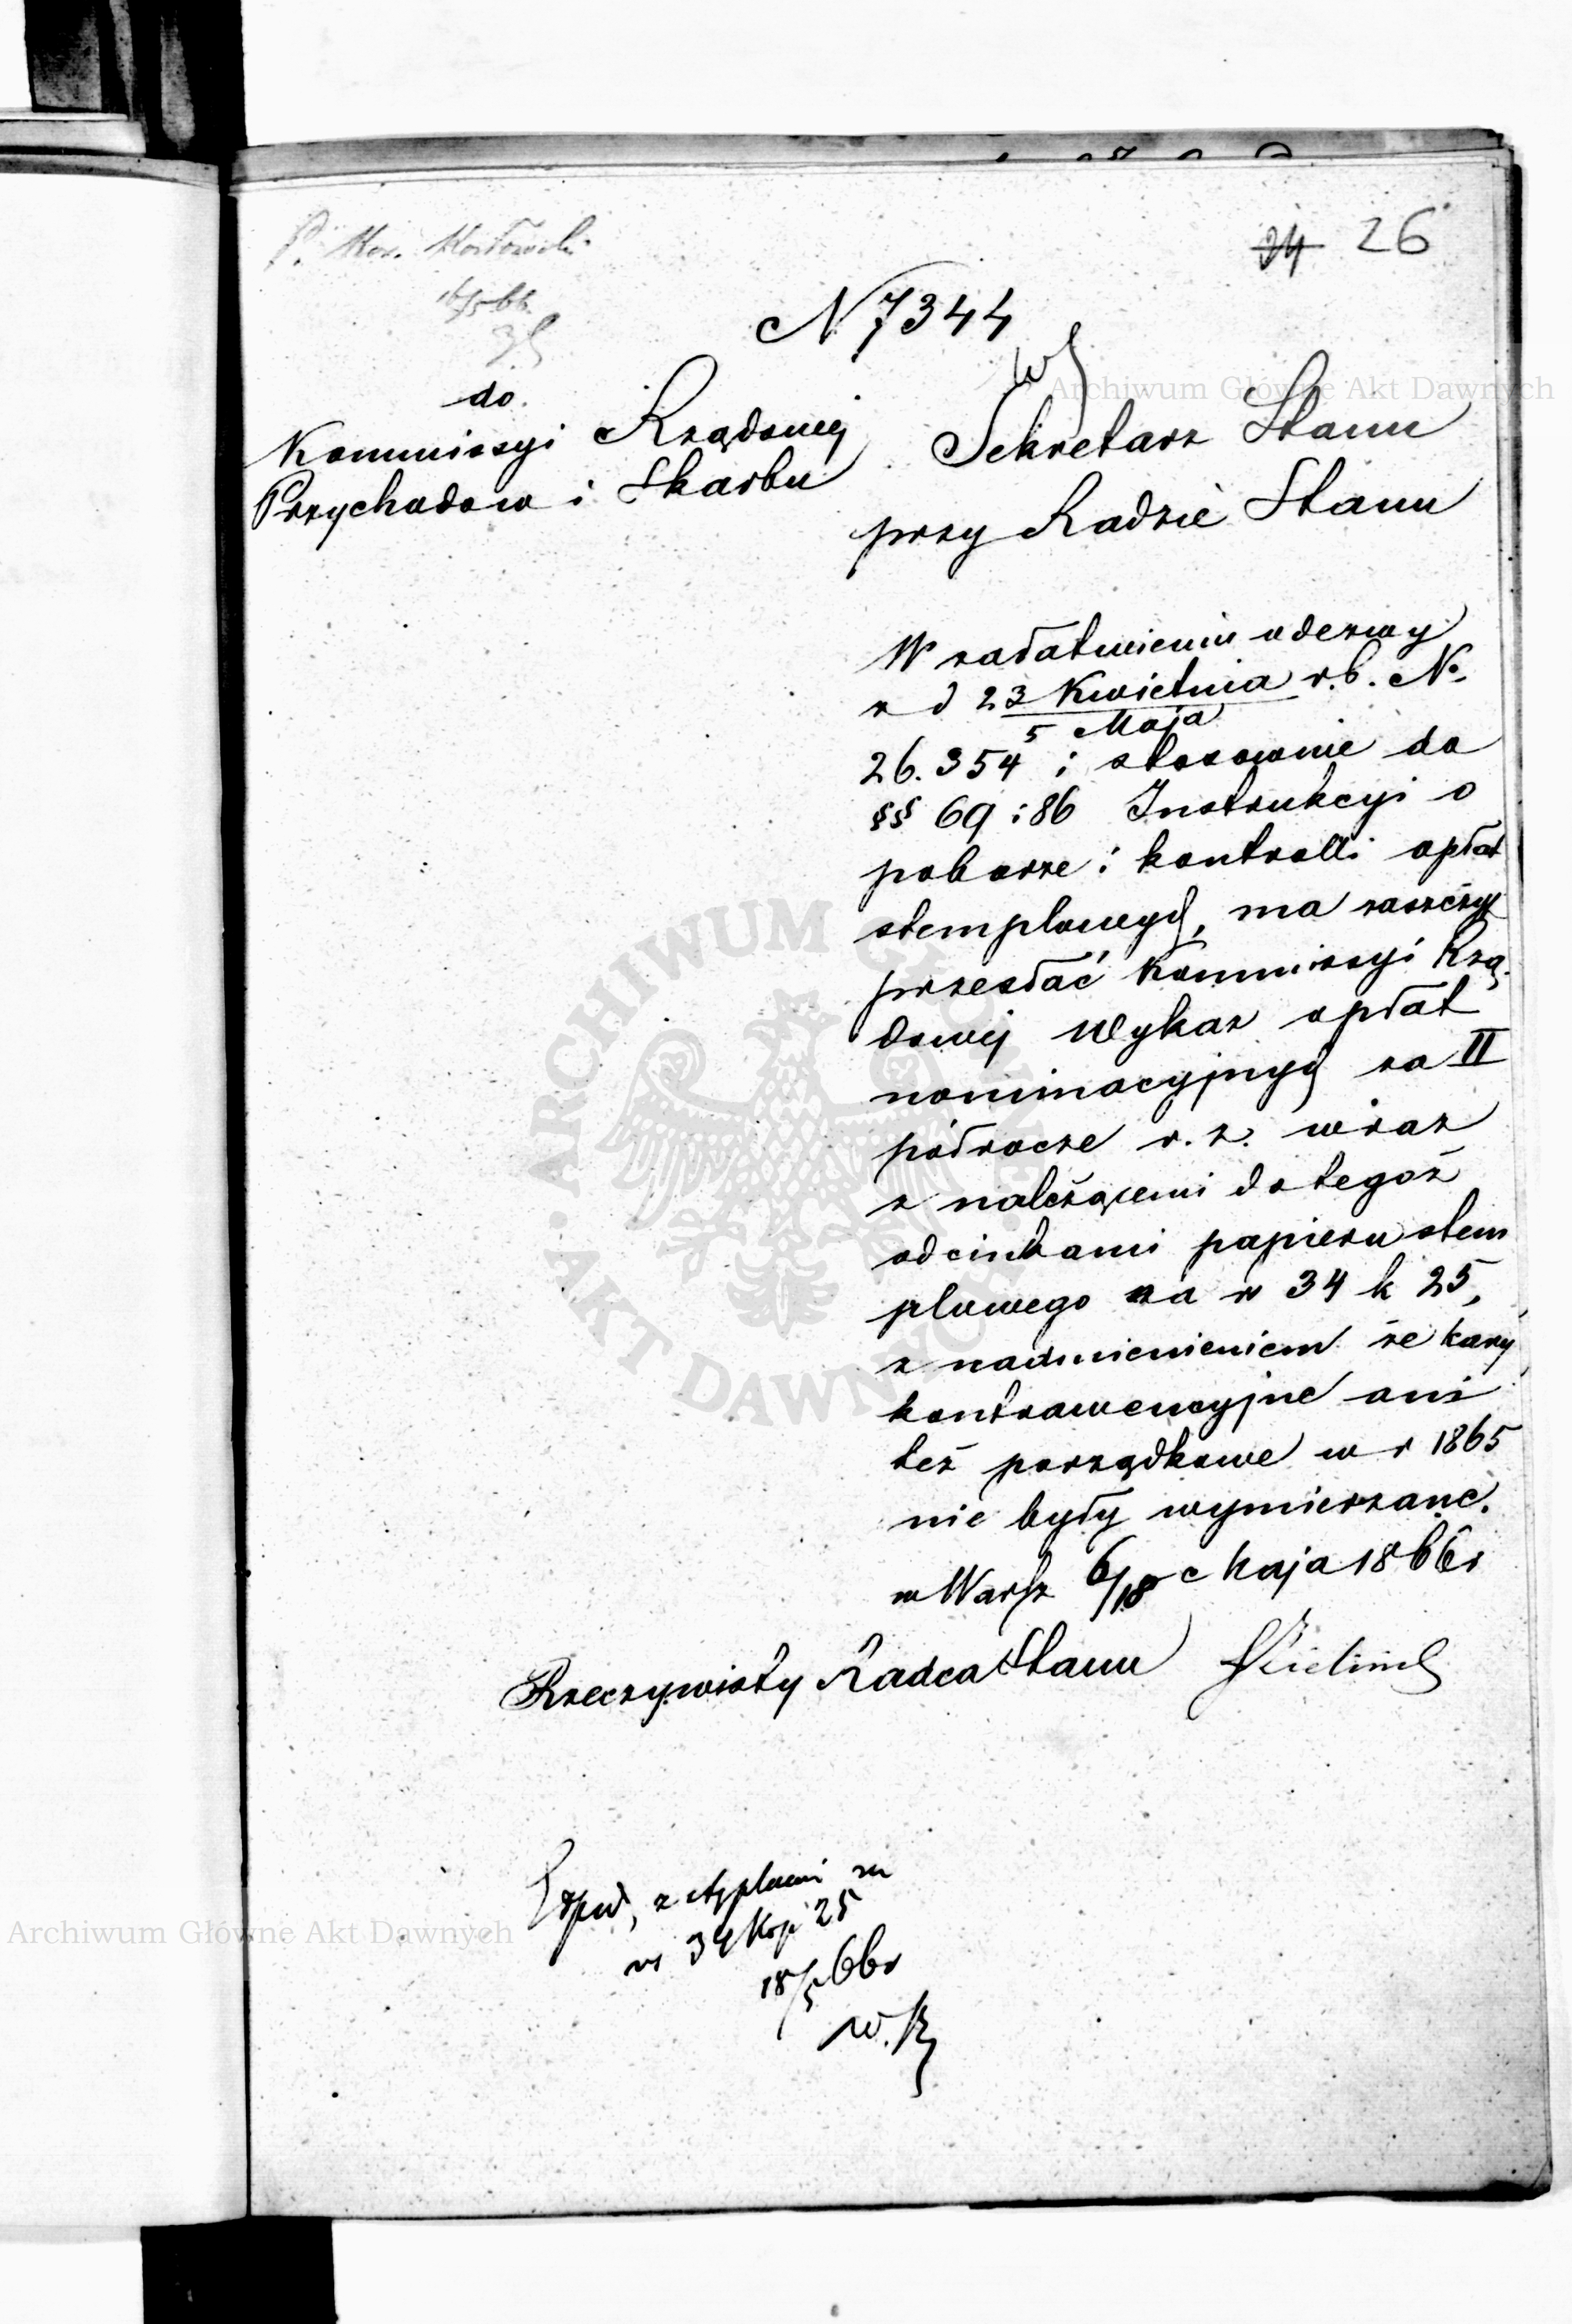 24 26
P.
N 7344
do
Kommissyi Rządowej
Przychodow i Skarbu
Sekretarz Stanu
przy Radzie Stanu
W załatwieniu odezwy
z d 23 Kwietnia r.b. No
5 Maja
26.354 i stosownie do
§§ 69 i 86 Instrukcyi o
poborze i kontrolli opłat
stemplowych, ma zaszczyt
przesłać Kommissyi Rzą
dowej Wykaz opłat
nominacyjnych za II
półrocze r. z. wraz
z należącemi do tegoż
odcinkami papieru stem
plowego na r 34 k 25,
z nadmienieniem że kary
kontrawencyjne ani
też porządkowe w r 1865
nie były wymierzane.
w Warsz 6/18 Maja 1866 r
Rzeczywisty Radca Stanu
z na
rs 34 Kop 25
18/5 66 r
w.
ARCHIWUM GŁÓWNE
AKT DAWNYCH
Archiwum Główne Akt Dawnych
Archiwum Główne Akt Dawnych